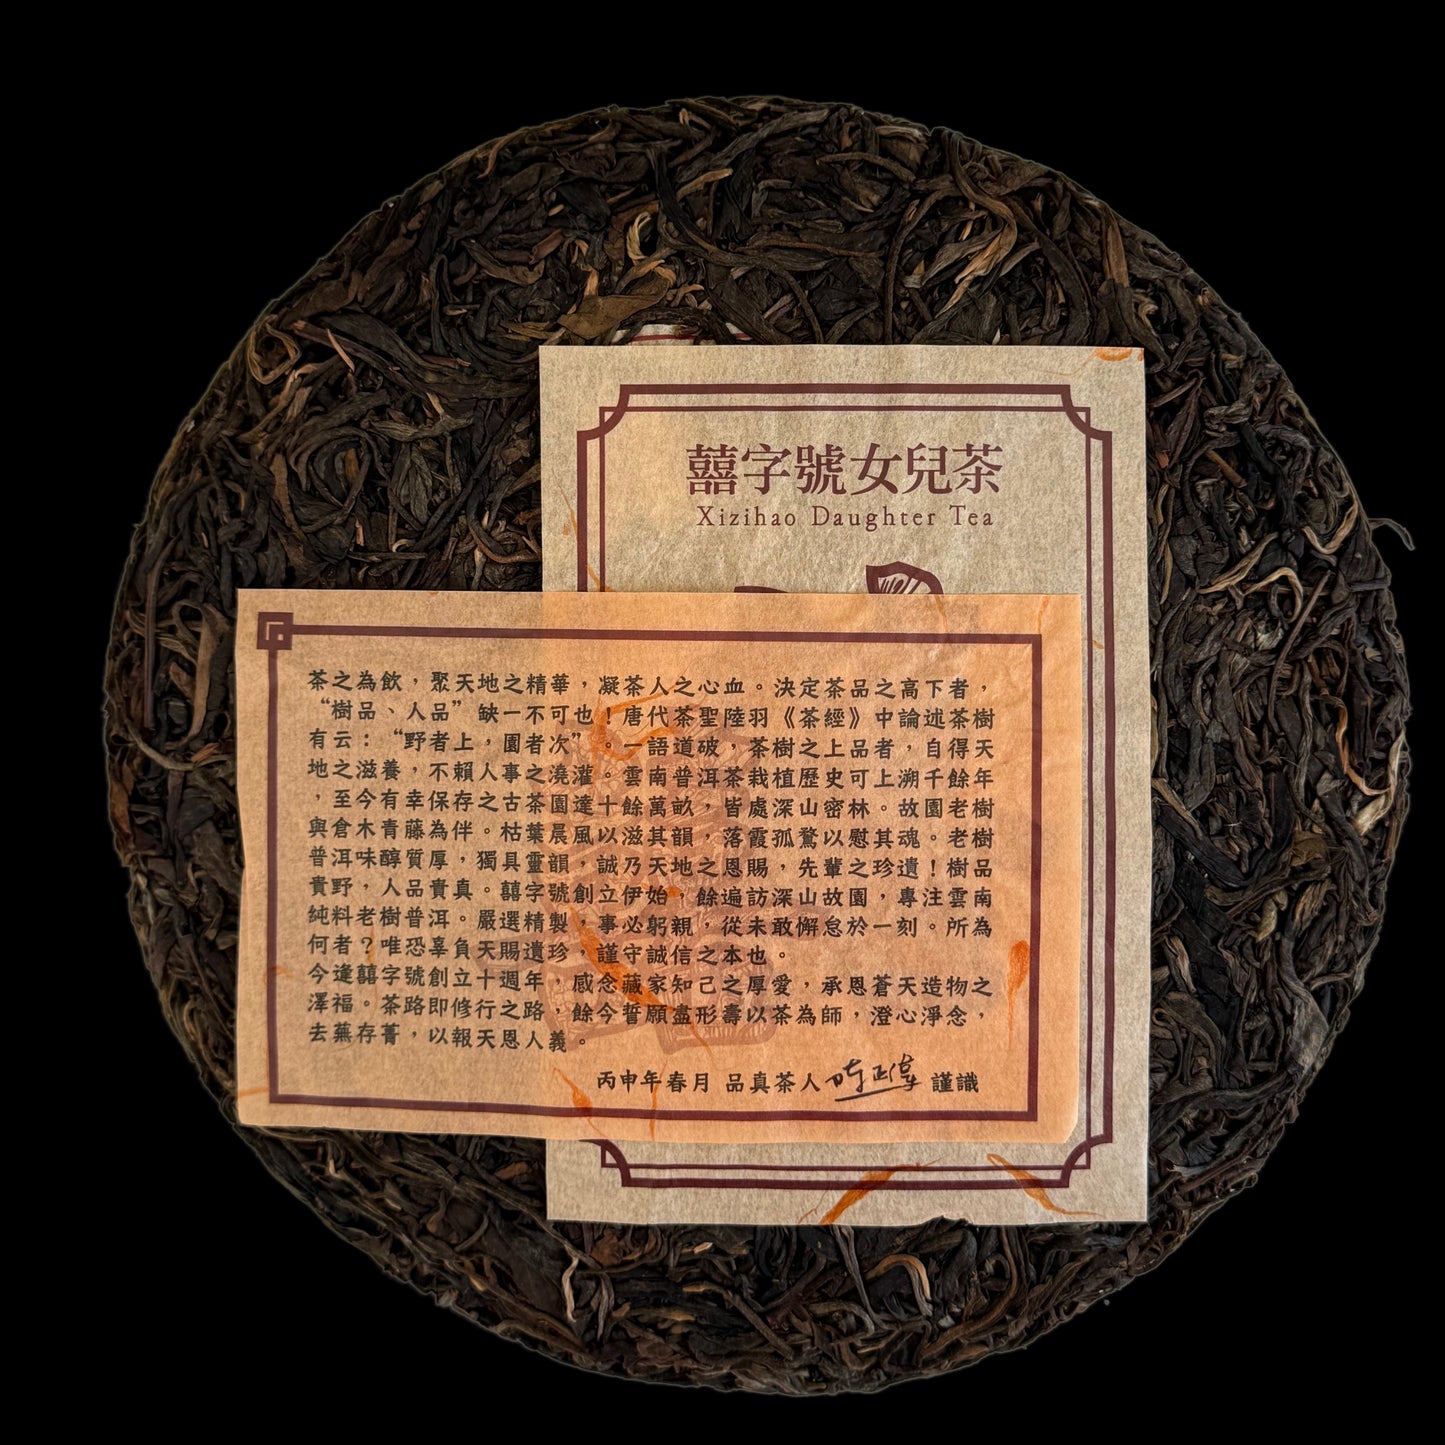 囍字號女兒茶
Xizihao Daughter Tea
茶之為飲，聚天地之精華，凝茶人之心血。決定茶品之高下者，
“樹品、人品”缺一不可也！唐代茶聖陸羽《茶經》中論述茶樹
有云：“野者上，園者次”。一語道破，茶樹之上品者，自得天
地之滋養，不賴人事之澆灌。雲南普洱茶栽植歷史可上溯千餘年
，至今有幸保存之古茶園達十餘萬畝，皆處深山密林。故園老樹
與倉木青藤為伴。枯葉晨風以滋其韻，落霞孤鶩以慰其魂。老樹
普洱味醇質厚，獨具靈韻，誠乃天地之恩賜，先輩之珍遺！樹品
貴野，人品貴真。囍字號創立伊始，餘遍訪深山故園，專注雲南
純料老樹普洱。嚴選精製，事必躬親，從未敢懈怠於一刻。所為
何者？唯恐辜負天賜遺珍，謹守誠信之本也。
今逢囍字號創立十週年，感念藏家知己之厚愛，承恩蒼天造物之
澤福。茶路即修行之路，餘今誓願盡形壽以茶為師，澄心淨念，
去蕪存菁，以報天恩人義。
丙申年春月 品真茶人 謹識